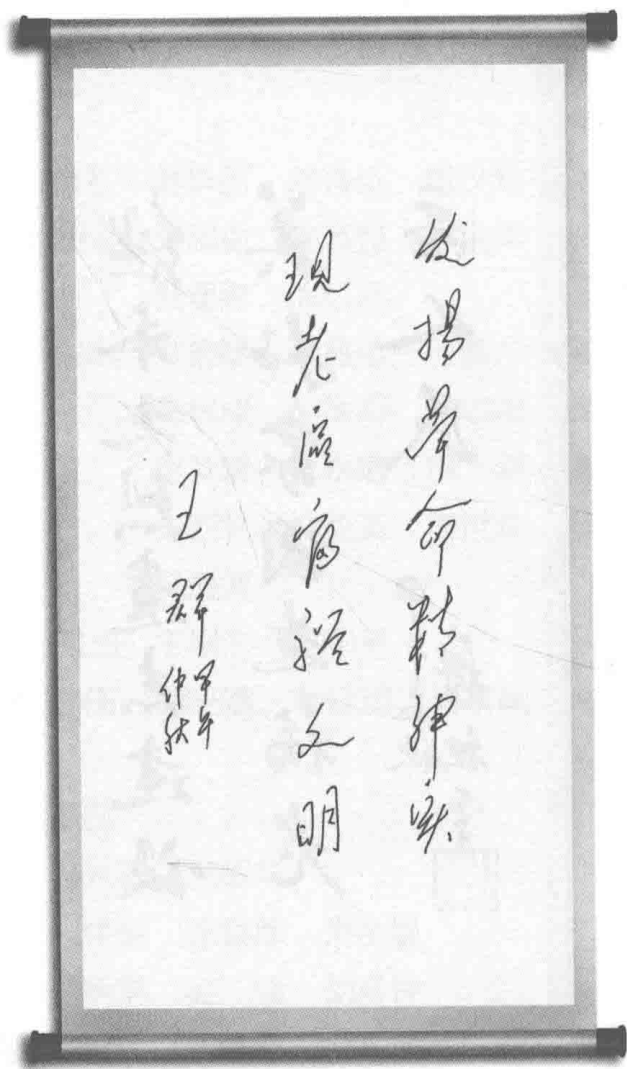 发揚革命精神实
现老区富裕文明
王群
甲午
仲秋